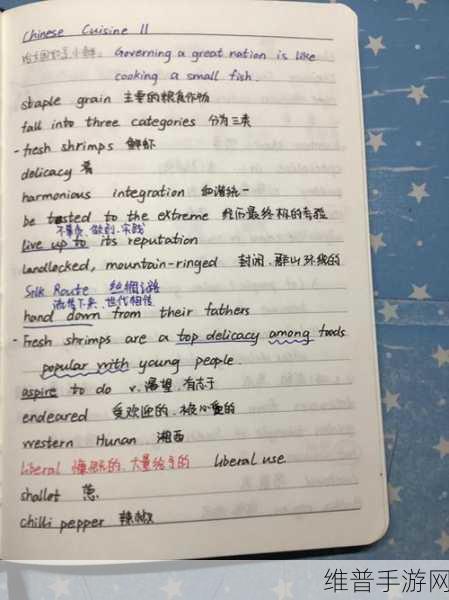 Chinese Cuisine II
治大国如烹小鲜: Governing a great nation is like
cooking a small fish.
staple grain 主要的粮食作物
fall into three categories 分为三类
- fresh shrimps 鲜虾
delicacy 肴
harmonious integration 和谐统一
be tested to the extreme 经历最终极的考验
不辜负、做到、实践
live up to its reputation
landlocked, mountain-ringed 封闭、群山环绕的
Silk Route 丝绸之路
流传下来、世代相传
hand down from their fathers
- Fresh shrimps are a top delicacy among foods
popular with young people.
aspire to do v. 渴望、有志于
endeared 受欢迎的、被心爱的
western Hunan 湘西
liberal 慷慨的、大量给予的 liberal use
shallot 葱
chilli pepper 辣椒
维普手游网